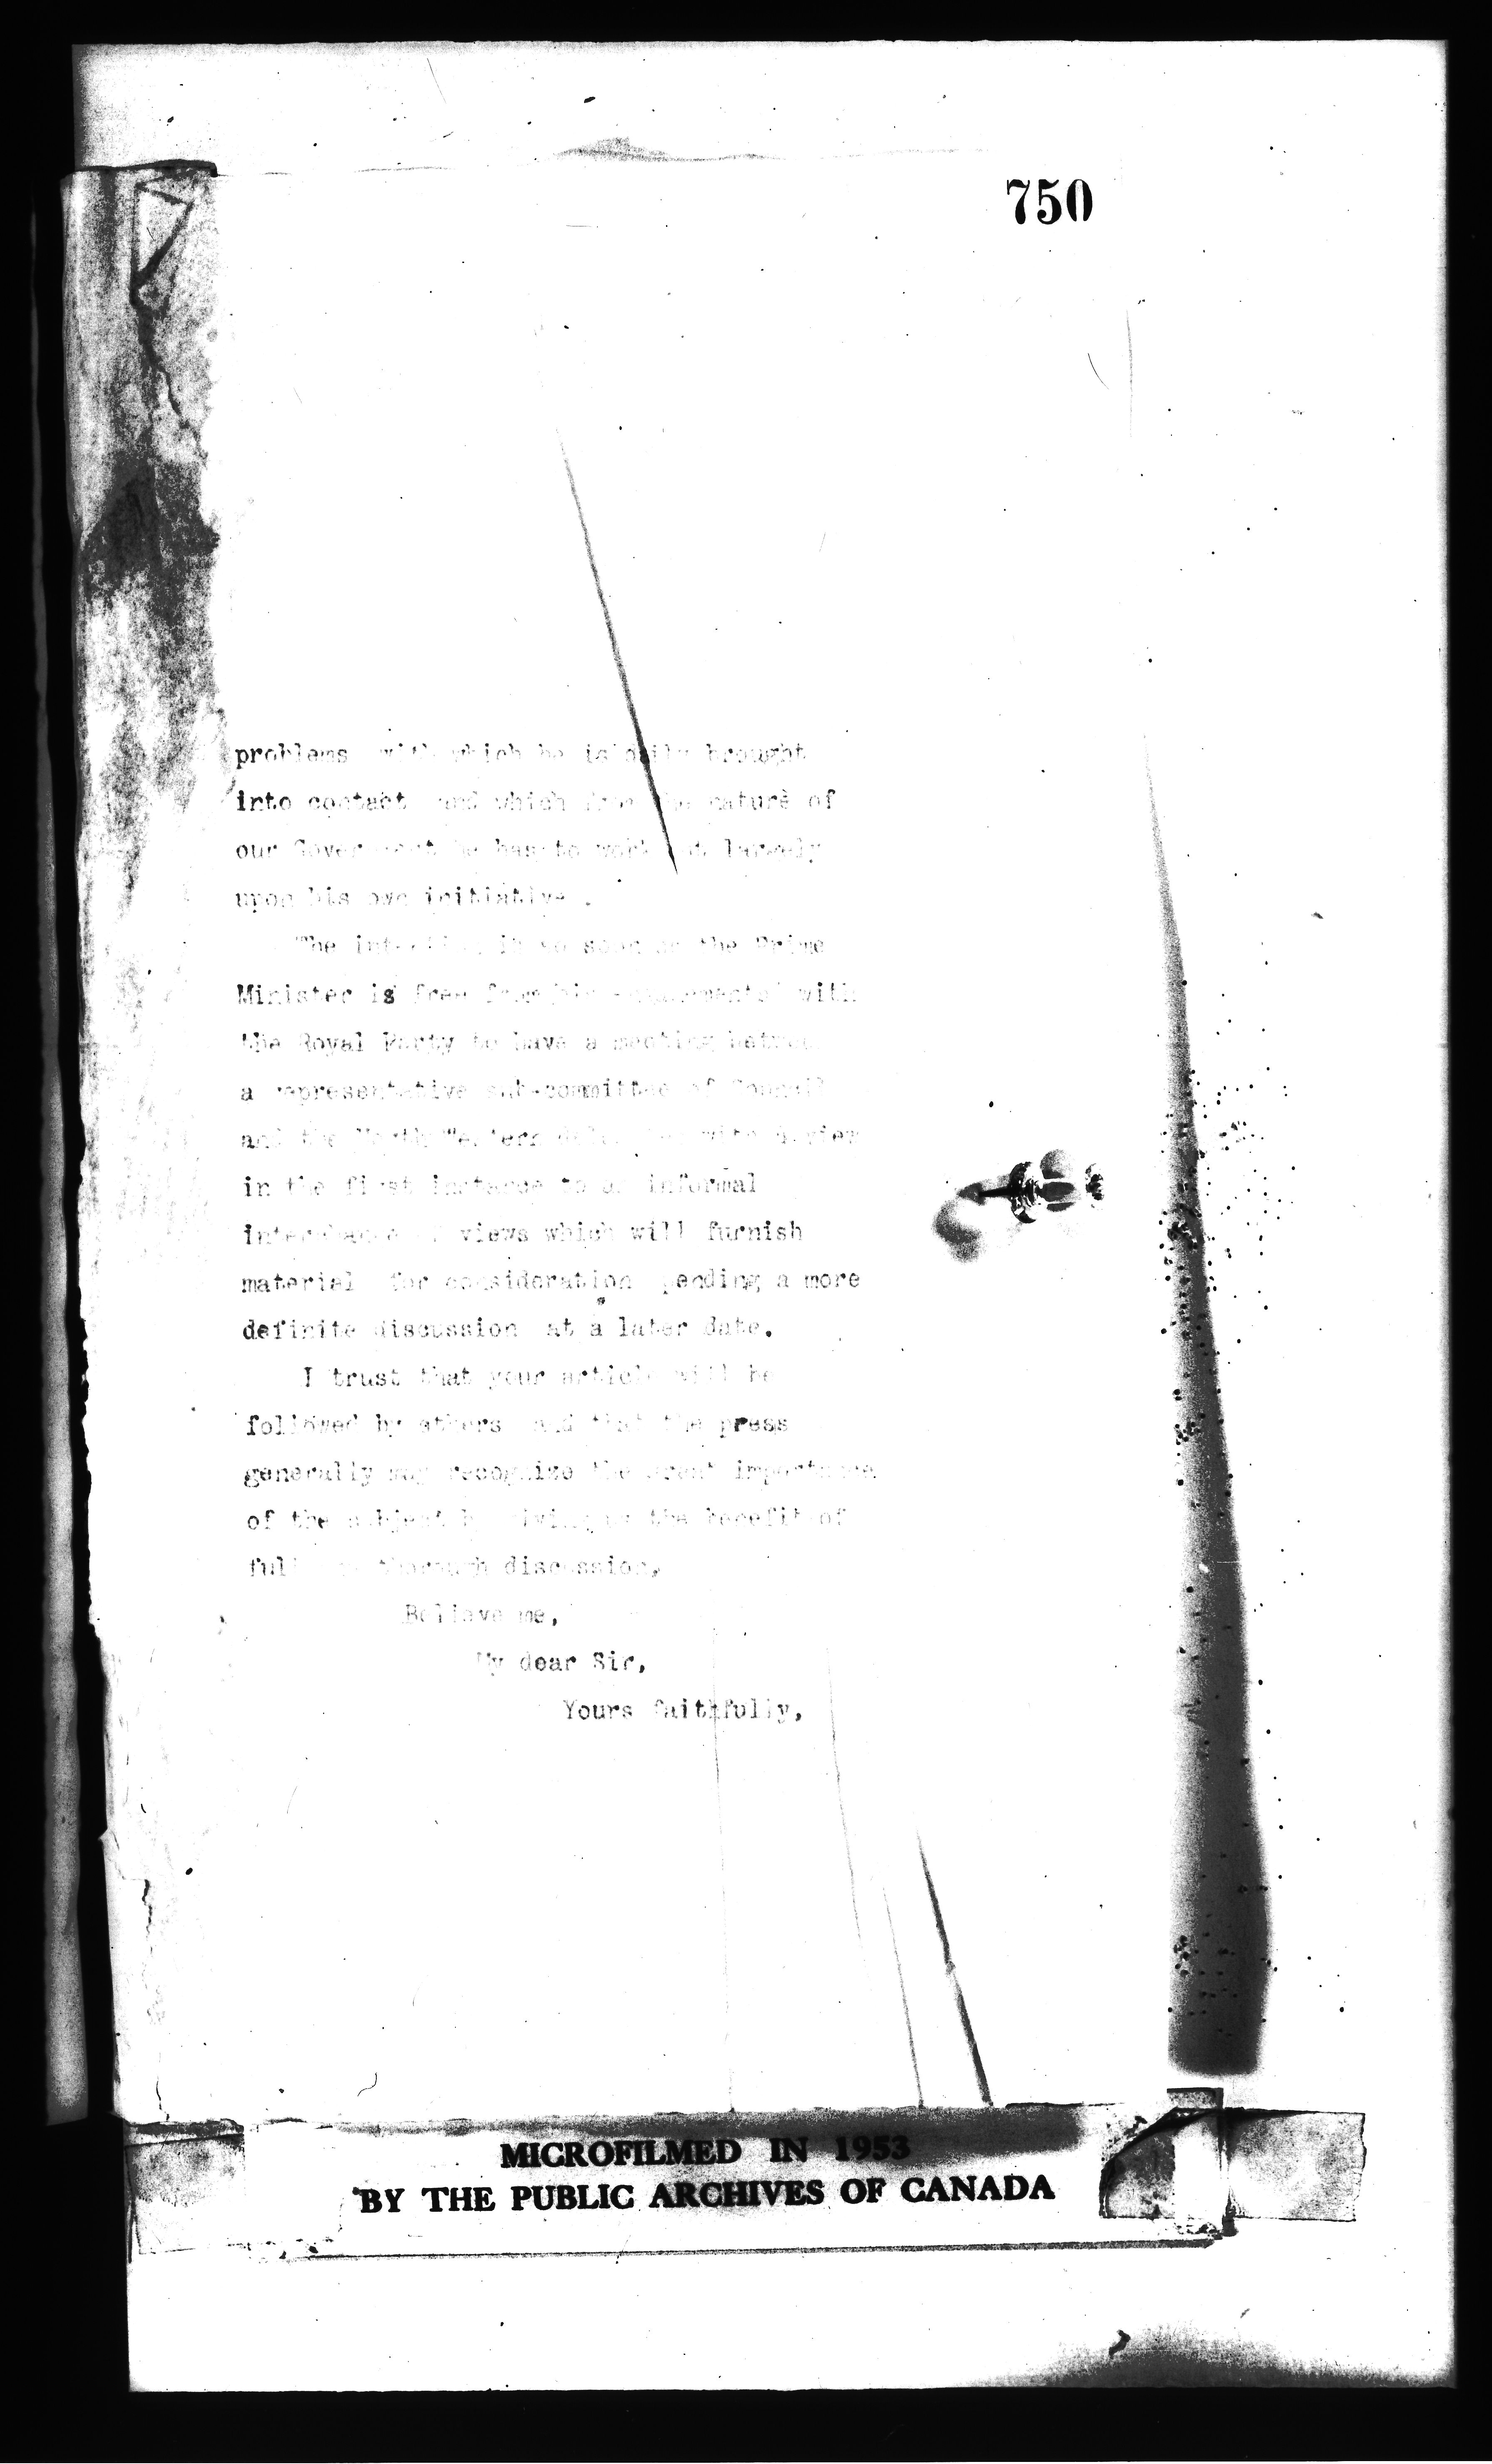 750
problems with which he is daily brought
into contact and which from the nature of
our Government he has to work out largely
upon his own initiative .
The intention is so soon as the Prime
Minister is free from his engagements with
the Royal Party to have a meeting between
a representative sub-committee of Council
and the North Western with a view
in the first instance to an informal
interchange of views which will furnish
material for consideration pending a more
definite discussion at a later date.
I trust that your article will be
followed by others and that the press
generally may recognize the great importance
of the subject by giving us the benefit of
full thorough discussion,
Believe me,
My dear Sir,
Yours faithfully,
MICROFILMED IN 1953
BY THE PUBLIC ARCHIVES OF CANADA